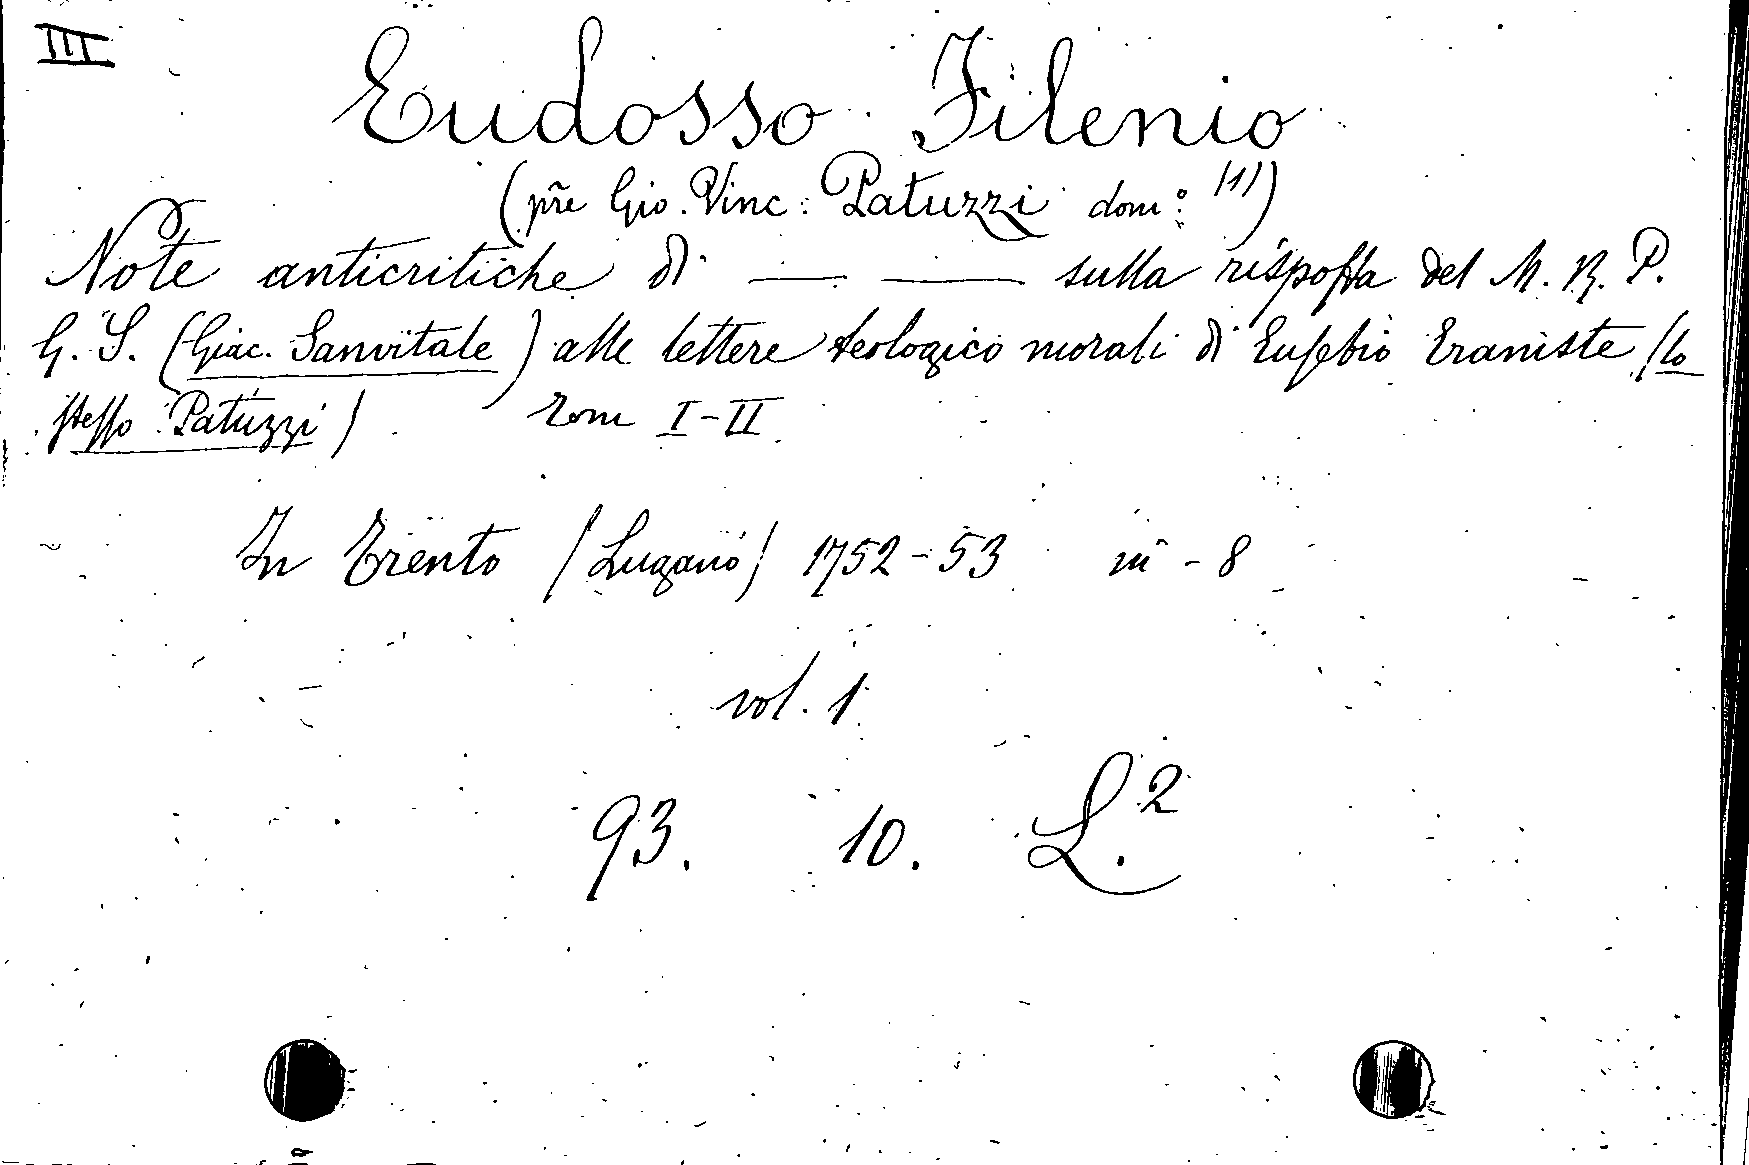 III
Eudosso Filenio
(pr̃e Gio. Vinc: Patuzzi dom:º (1))
Note anticritiche di — — sulla risposta del M. R. P.
G. S. (Giac. Sanvitale) alle lettere teologico morali di Eusebio Eraniste (lo
stesso Patuzzi) Tom I-II
In Trento (Lugano) 1752-53 in - 8
vol. 1
93. 10. L.²